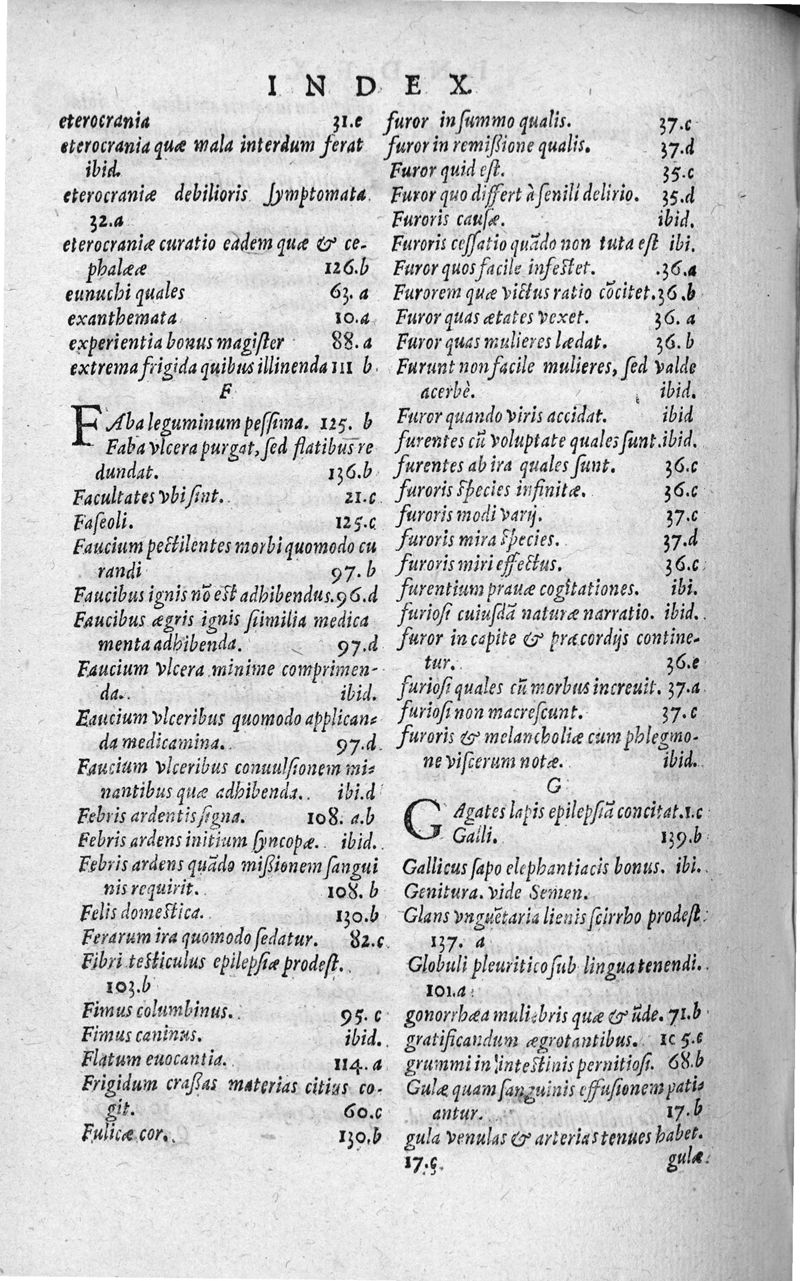 INDEX
eterocrania 31.e
eterocrania quæ mala interdum ferat
ibid.
eterocraniæ debilioris ſymptomata
32.a
eterocraniæ curatio eadem quæ & ce-
phalææ 126.b
eunuchi quales 63. a
exanthemata 10.a
experientia bonus magiſter 88. a
extrema frigida quibus illinenda 111 b
F
FAba leguminum peſsima. 125. b
Faba vlcera purgat, ſed flatibus re
dundat. 136.b
Facultates vbi ſint. 21.c
Faſeoli. 125.c
Faucium peſtilentes morbi quomodo cu
randi 97.b
Faucibus ignis nõ eſt adhibendus. 96.d
Faucibus ægris ignis ſiimilia medica
menta adhibenda. 97.d
Faucium vlcera minime comprimen-
da. ibid.
Faucium vlceribus quomodo applican-
da medicamina. 97.d
Faucium vlceribus conuulſionem mi-
nantibus quæ adhibenda. ibi.d
Febris ardentis ſigna. 108. a.b
Febris ardens initium ſyncopæ. ibid.
Febris ardens quãdo miſsionem ſangui
nis requirit. 108. b
Felis domeſtica. 130.b
Ferarum ira quomodo ſedatur. 82.c
Fibri teſticulus epilepſiæ prodeſt.
103.b
Fimus columbinus. 95. c
Fimus caninus. ibid.
Flatum euocantia. 114. a
Frigidum craſſas materias citius co-
git. 60.c
Fulicæ cor. 130.b
furor in ſummo qualis. 37.c
furor in remiſsione qualis. 37.d
Furor quid eſt. 35.c
Furor quo differt à ſenili delirio. 35.d
Furoris cauſæ. ibid.
Furoris ceſſatio quãdo non tuta eſt ibi.
Furor quos facile infeſtet. .36.a
Furorem quæ victus ratio cõcitet. 36.b
Furor quas ætates vexet. 36. a
Furor quas mulieres lædat. 36. b
Furunt non facile mulieres, ſed valde
acerbè. ibid.
Furor quando viris accidat. ibid
furentes cũ voluptate quales ſunt. ibid.
furentes ab ira quales ſunt. 36.c
furoris ſpecies infinitæ. 36.c
furoris modi varij. 37.c
furoris mira ſpecies. 37.d
furoris miri effectus. 36.c
furentium prauæ cogitationes. ibi.
furioſi cuiuſdã naturæ narratio. ibid.
furor in capite & præcordijs contine-
tur. 36.e
furioſi quales cũ morbus increuit. 37.a
furioſi non macreſcunt. 37.c
furoris & melancholiæ cum phlegmo-
ne viſcerum notæ. ibid.
G
GAgates lapis epilepſiã concitat. 1.c
Galli. 139.b
Gallicus ſapo elephantiacis bonus. ibi.
Genitura. vide Semen.
Glans vnguẽtaria lienis ſcirrho prodeſt.
137. a
Globuli pleuritico ſub lingua tenendi.
101.a
gonorrhæa muliebris quæ & ũde. 71.b
gratificandum ægrotantibus. 105.c
grummi in inteſtinis pernitioſi. 68.b
Gulæ quam ſanguinis effuſionem pati-
antur. 17.b
gula venulas & arterias tenues habet.
17.c. gulæ